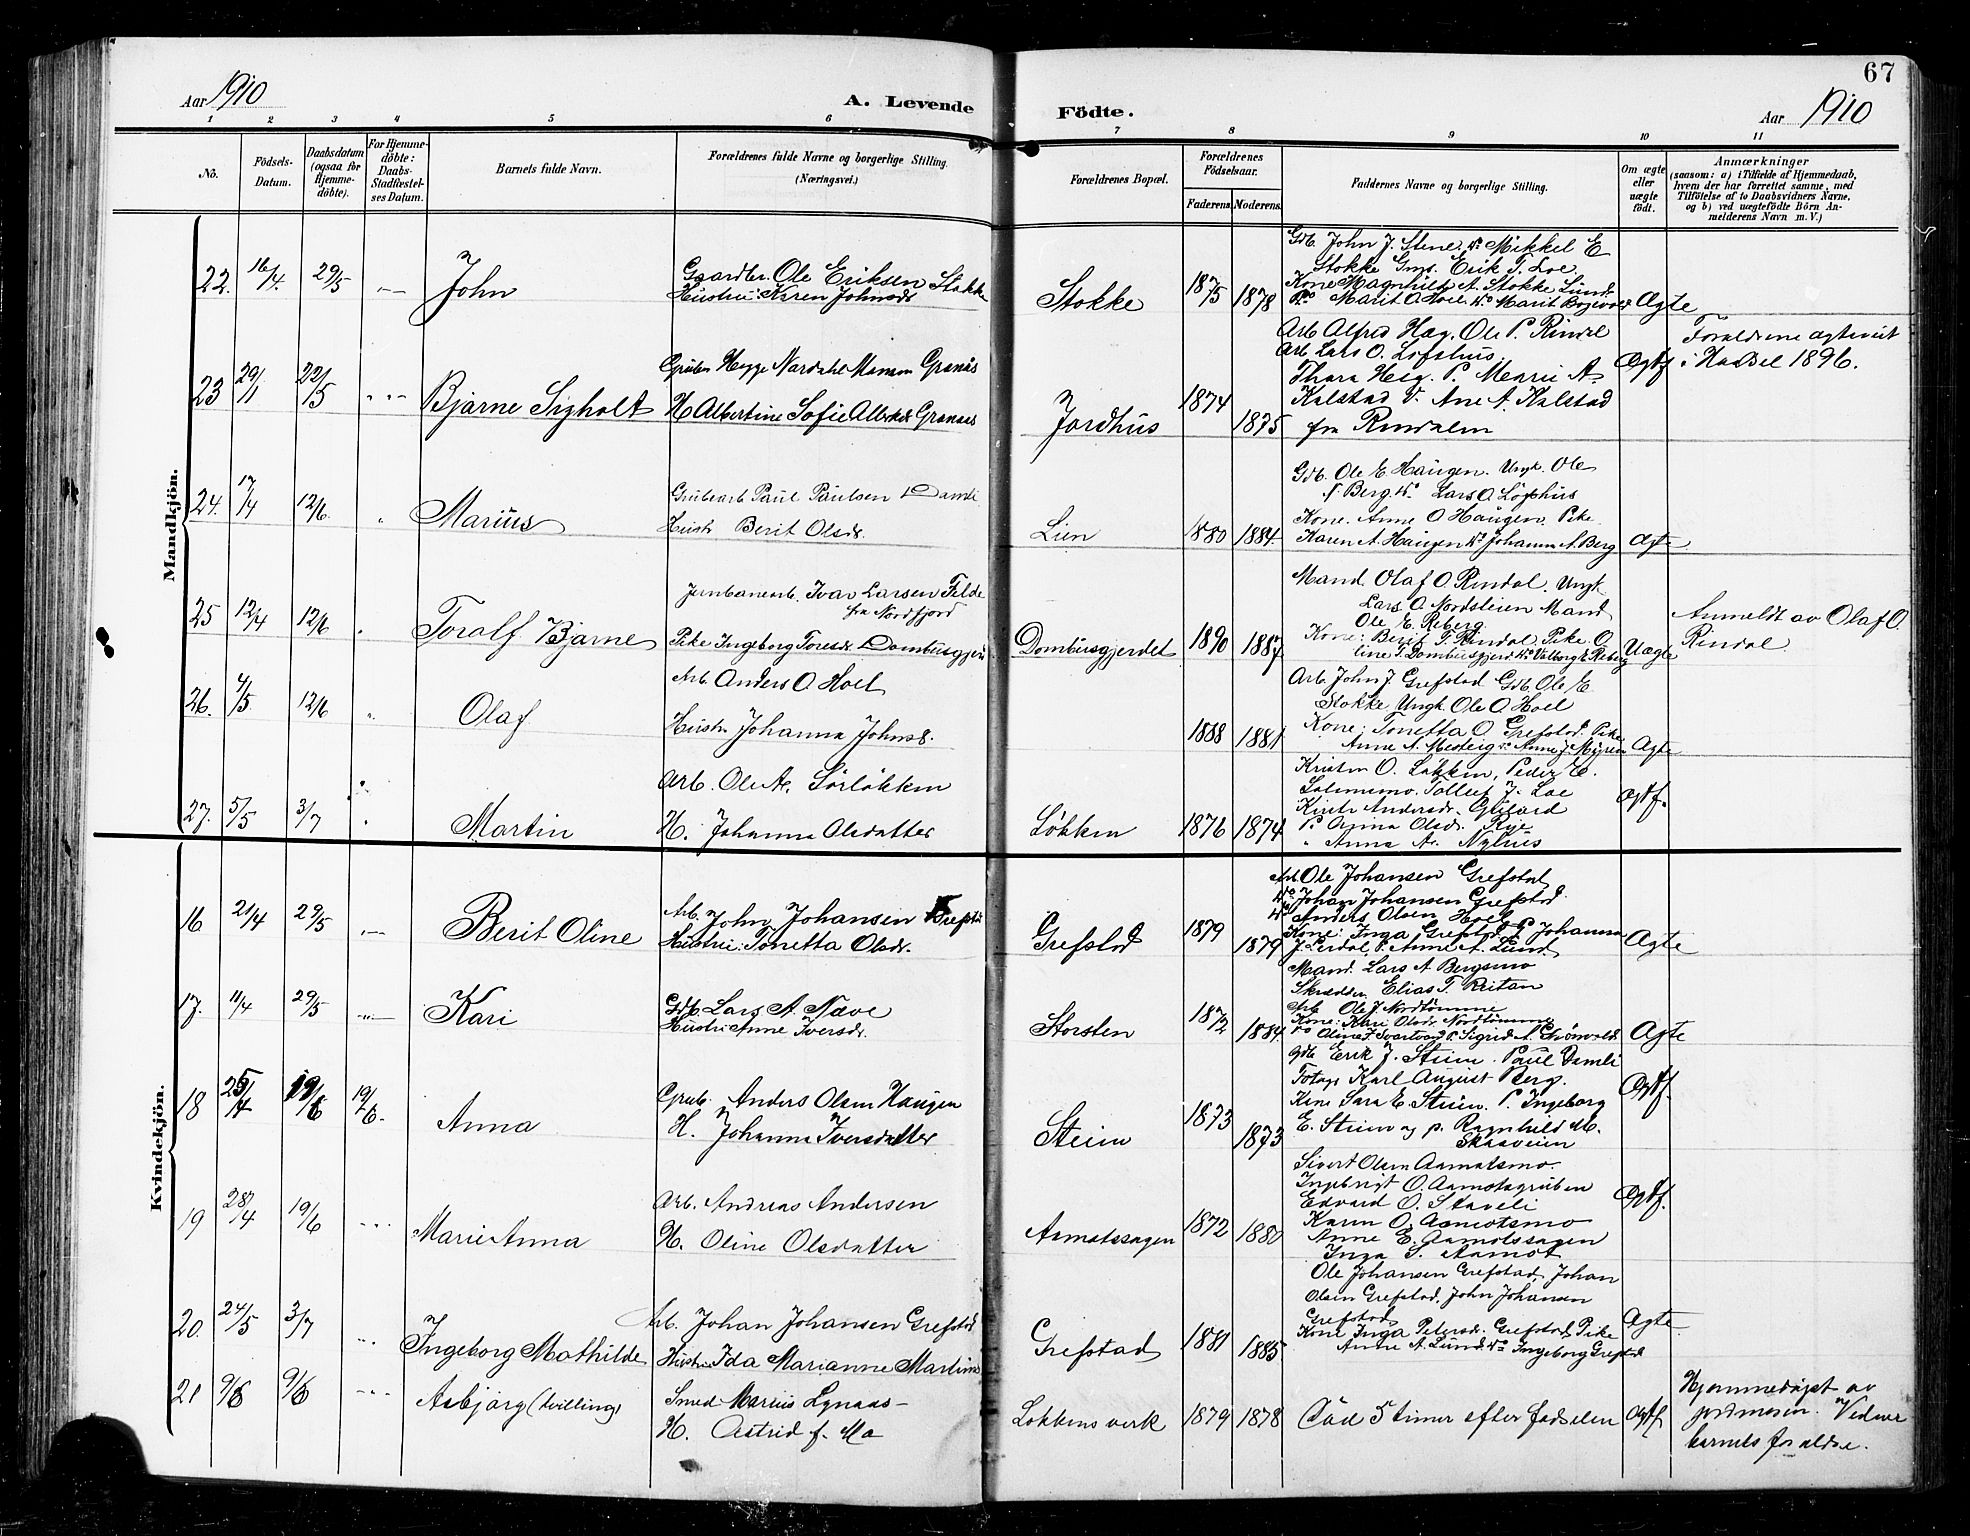 Aar 1910
A. Levende
Födte.
Aar 1910
67
1 2 3 4 5 6 7 8 9 10 11
No.
Födsels-Datum.
Daabsdatum (ogsaa för Hjemme-döbte).
For Hjemme-döbte: Daabs-Stadfæstel-ses Datum.
Barnets fulde Navn.
Forældrenes fulde Navne og borgerlige Stilling.
(Næringsvei.)
Forældrenes Bopæl.
Forældrenes Födselsaar.
Faderens. Moderens.
Faddernes Navne og borgerlige Stilling.
Om ægte eller uægte födt.
Anmærkninger
(saasom: a) i Tilfælde af Hjemmedaab,
hvem der har forrettet samme, med
Tilföielse af to Daabsvidners Navne,
og b) ved uægtefödte Börn An-
melderens Navn m. V.)
Mandkjön.
22. 16/4. 29/5 John
Gaardbr. Ole Eriksen Stokke
Hustru: Karen Johnsdr
Stokke 1875 1878
Gdb. John J. Stene. do Mikkel E
Stokke Gms. Erik T. Loe
Kone Magnhild A. Stokke Lund.
Marit O. Hoel do Marit
Ægte
23 29/11 22/5 Bjarne Sigholt
Hegge Nordahl Granås
H Albertine Sofie Granaas
Jordhus 1874 1875
Arb Alfred Hæg. Ole P. Rindal
Arb Lars O. Löfshus
Thora Heg. P. Marie A
Kalstad do Ane A. Kalstad
fra Rindalen
Ægtf
Forældrene ægteviet
i Hadsel 1896.
24. 17/4 12/6. Marius
Grubearb. Paul Paulsen Damli
Hustr Berit Olsdr.
Lien 1880 1884.
Gdb. Ole E Haugen. Ungk. Ole
Berg. do Lars O. Löfshus
Kone. Anne O Haugen. Pike
Karen A. Haugen do Johanna A. Berg
Ægte
25 12/4 12/6 Toralf Bjarne
Jernbanearb. Ivar Larsen Felde
fra Nordfjord
Pike Ingeborg Toresdr. Dombusgjerd
Dombusgjerdet 1890 1887
Mand. Olaf O. Rindal. Ungk
Lars O. Nordsteien Mand
Ole E. Reberg
Kone: Berit T. Rindal, Pike O
line T. Dombusgjerd do Valborg E Reberg
Uægte
Anmeldt av Olaf O.
Rindal.
26. 4/5 12/6 Olaf
Arb. Anders O. Hoel
Hustr Johanna Johnsd.
1888 1881
Arb. John J. Grefstad Gdb. Ole E
Stokke Ungk. Ole O. Hoel
Kone: Tonetta O. Grefstad. Pike
Anne A. do Anne J. Myren
Ægte
27. 5/5 3/7 Martin
Arb. Ole A. Sörlökken
H. Johanna Olsdatter
Løkken 1876 1874
Kristen O. Løkken, Peder E.
Solemsmo. Tollef J. Loe
Andersdr.
P. Anna Olsdr. Rye
" Anna A. Nyhus
Ægtf.
Kvindekjön.
16 21/4 29/5 Berit Oline
Arb. John Johansen Grefstad
Hustru: Tonetta Olsdr.
Grefstad 1879 1879
Arb. Ole Johansen Grefstad
do Johan Johansen Grefstad
do Anders Olsen Hoel
Kone: Inga Grefstad P. Johanna
J. P. Anne A. Lund
Ægte
17. 11/4 29/5 Kari
Gdb. Lars A. Næve
Hustru Anne Iversdr.
Storsten 1872 1884.
Mand. Lars A Bergsmo
Skrædder Elias T. Reitan
Arb Ole J. Nordtömme
Kone: Kari Olsdr. Nordtömme
Oline J. P. Sigrid A. Grönvold
Ægte
18 25/4 19/6 19/6. Anna
Grub. Anders Olsen Haugen
H. Johanna Iversdatter
Steien 1873 1873
gdb Erik J. Steien. Paul Damli
Fotogr Karl August Berg.
Kone Sara E. Steien. P. Ingeborg
E. Steien og p. Ragnhild M.
Ægtf.
19 28/4 19/6 Marie Anna
Arb. Andreas Andersen
H. Oline Olsdatter
Aamotssagen 1872 1880
Sivert Olsen Aamotsmo.
Ingebrigt O. Aamotsgruben
Edvard O. Staveli
Karen O. Aamotsmo
Anne E. Aamotssagen
Inga S. Aamot
Ægtf.
20. 24/5 3/7 Ingeborg Mathilde
Arb. Johan Johansen Grefstad
Hustru Ida Marianne Martins
Grefstad 1881 1885
Ole Johansen Grefstad, Johan
Olsen Grefstad, John Johansen
Grefstad
Kone Inga Petersdr. Grefstad Pike
Anne A. Lund. do Ingeborg Grefstad
Ægte.
21 9/6 9/6 Asbjörg (tvilling)
Smed Marius Lynaas
H. Astrid f. Mo
Løkkens verk 1879 1878
Død 5 timer efter fødselen
Ægtf
Hjemmedøpt av
jordmoren. Vidner
barnets forældre.